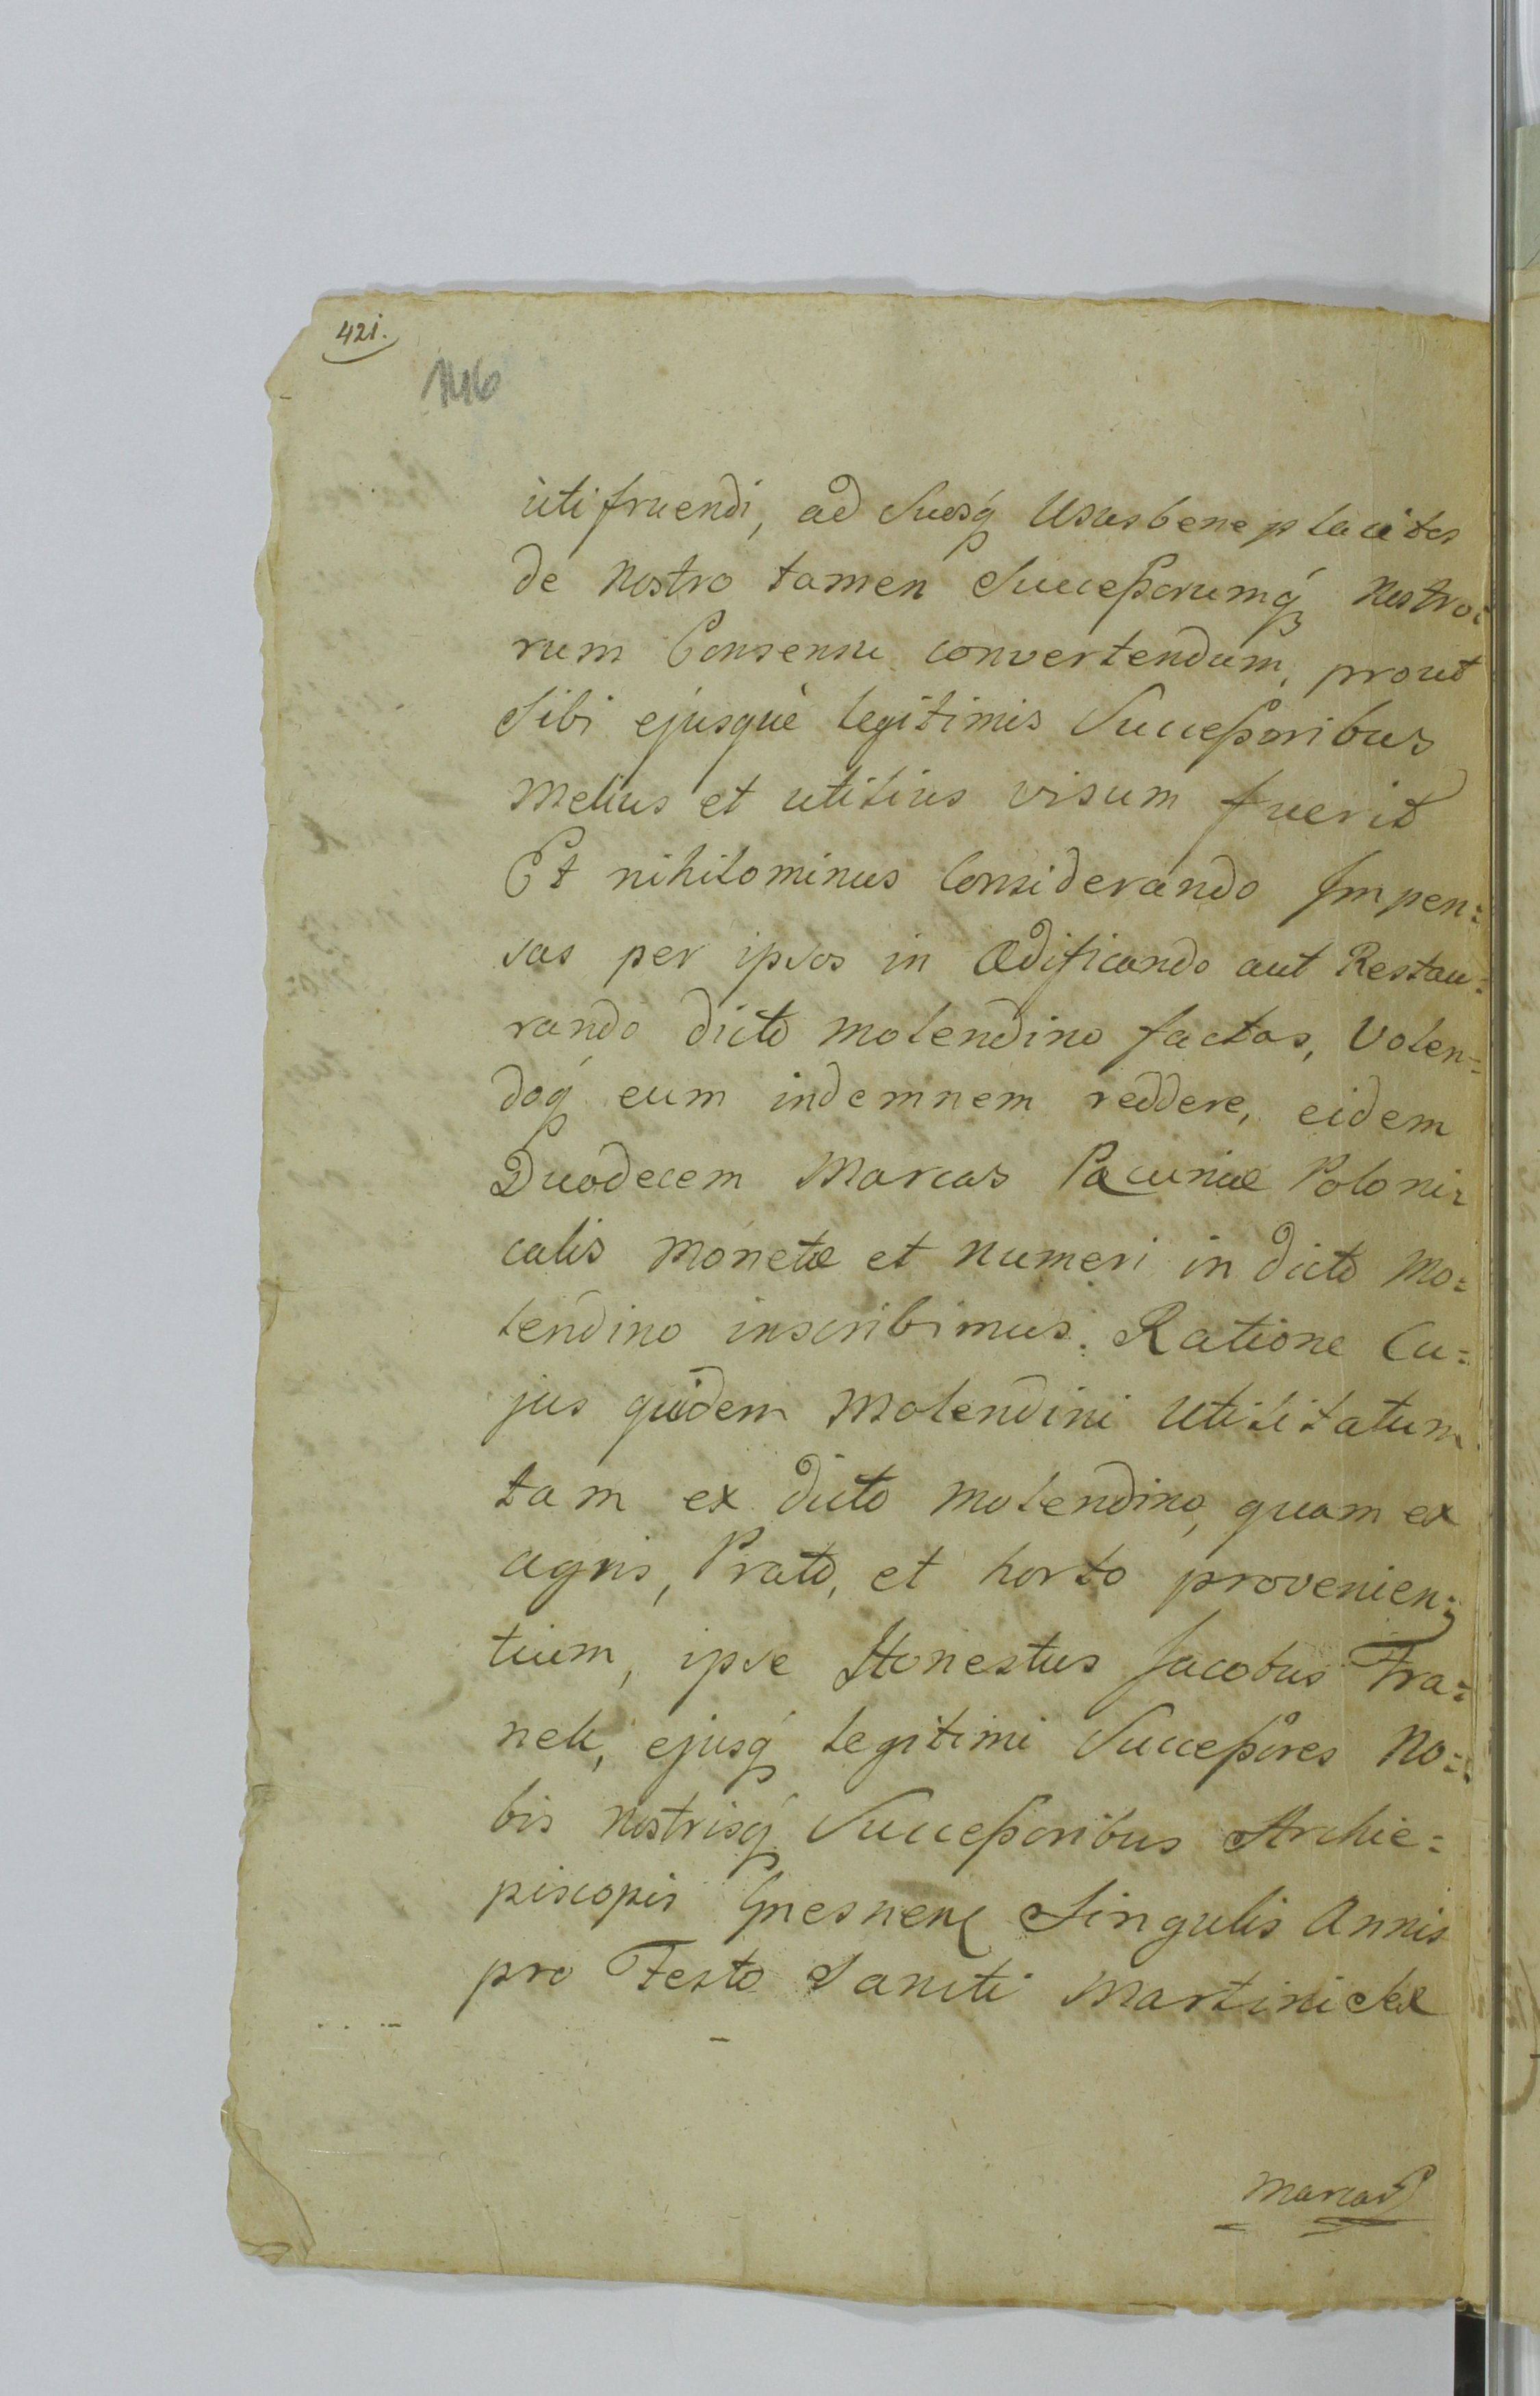 421.
146
ùtifruendi, ad Suosq́ Usus beneplacitos
de nostro tamen Succeßorumq́ nostro=
rum Consensu convertendum, prout
Sibi ejusquè legitimis Succeßoribus
melius et utilius visum fuerit
Et nihilominus Considerando Impen=
sas per ipsos in Ædificando aut Restau=
rando dicto molendino factas, Volen=
doq́ eum indemnem reddere, eidem
Duodecem Marcas Pecuniæ Poloni=
calis Monetæ et Numeri in dicto Mo=
lendino inscribimus. Ratione Cu=
jus quidem Molendini Utilitatum
tam ex dicto molendino, quam ex
agris, Prato, et horto provenien=
tium, ipse Honestus Jacobus Fra=
nek, ejusq́ legitimi Succeßores No=
bis nostrisq́ Succeßoribus Archie=
piscopis Gnesnen Singulis Annis
pro Festo Sancti Martini
Marcas